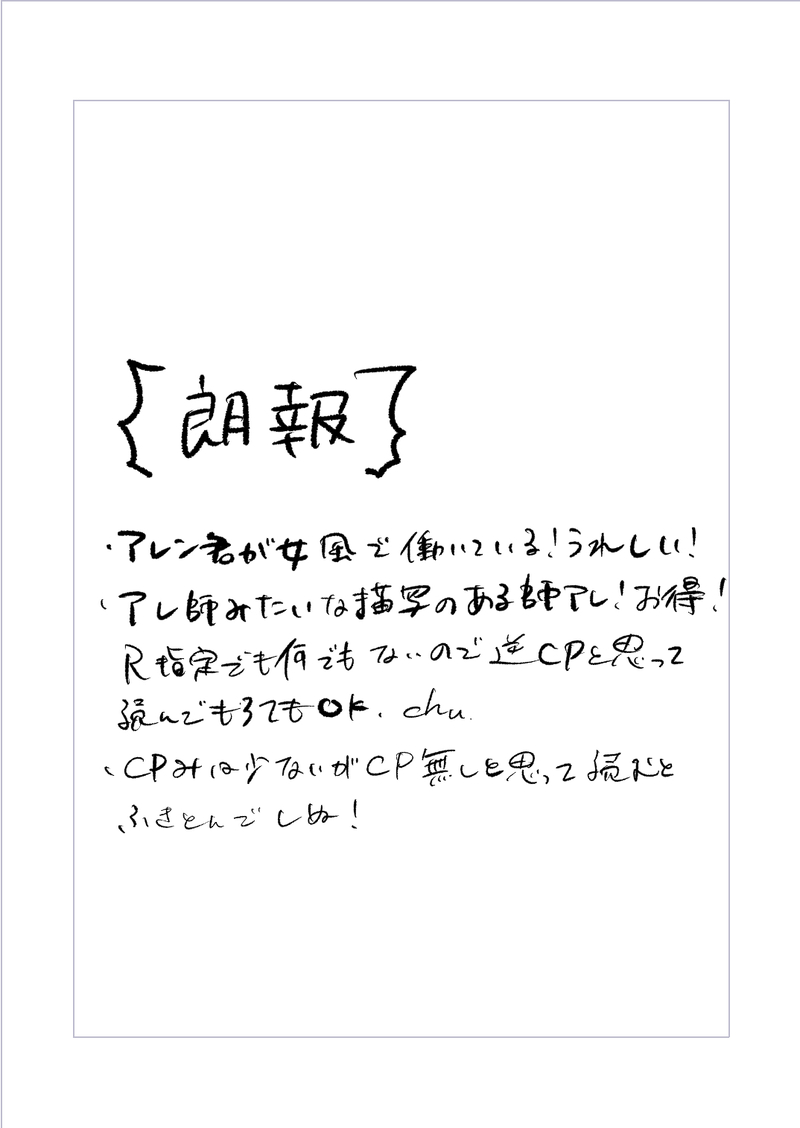 【朗報】
・アレン君が女風で働いている!うれしい!
・アレ師みたいな描写のある師アレ!お得!
R指定でも何でもないので逆CPと思って
読んでもろてもOK. chu.
・CPみは少ないがCP無しと思って読むと
ふきとんでしぬ!